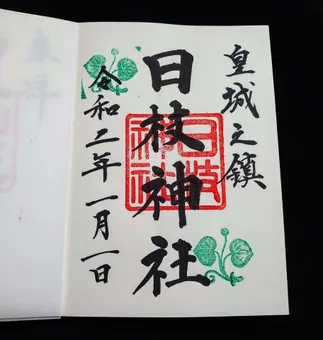 皇城之鎮
日枝神社
令和二年一月一日
日枝神社